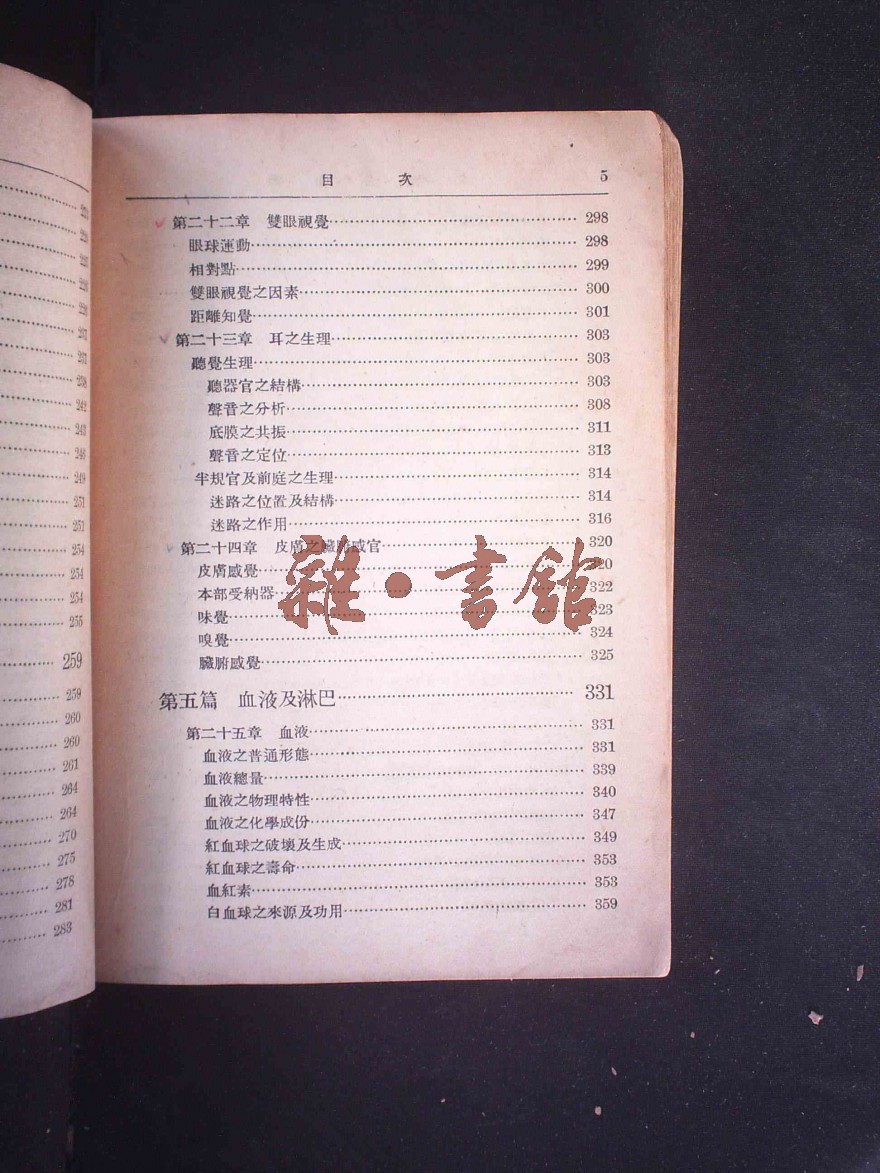 目 次 5
第二十二章 雙眼視覺 298
眼球運動 298
相對點 299
雙眼視覺之因素 300
距離知覺 301
第二十三章 耳之生理 303
聽覺生理 303
聽器官之結構 303
聲音之分析 308
底膜之共振 311
聲音之定位 313
半規官及前庭之生理 314
迷路之位置及結構 314
迷路之作用 316
第二十四章 皮膚之臟腑感官 320
皮膚感覺 320
本部受納器 322
味覺 323
嗅覺 324
臟腑感覺 325
第五篇 血液及淋巴 331
第二十五章 血液 331
血液之普通形態 331
血液總量 339
血液之物理特性 340
血液之化學成份 347
紅血球之破壞及生成 349
紅血球之壽命 353
血紅素 353
白血球之來源及功用 359
雜·書館
242
243
246
249
251
251
254
254
254
255
259
259
260
260
261
264
264
270
275
278
281
283